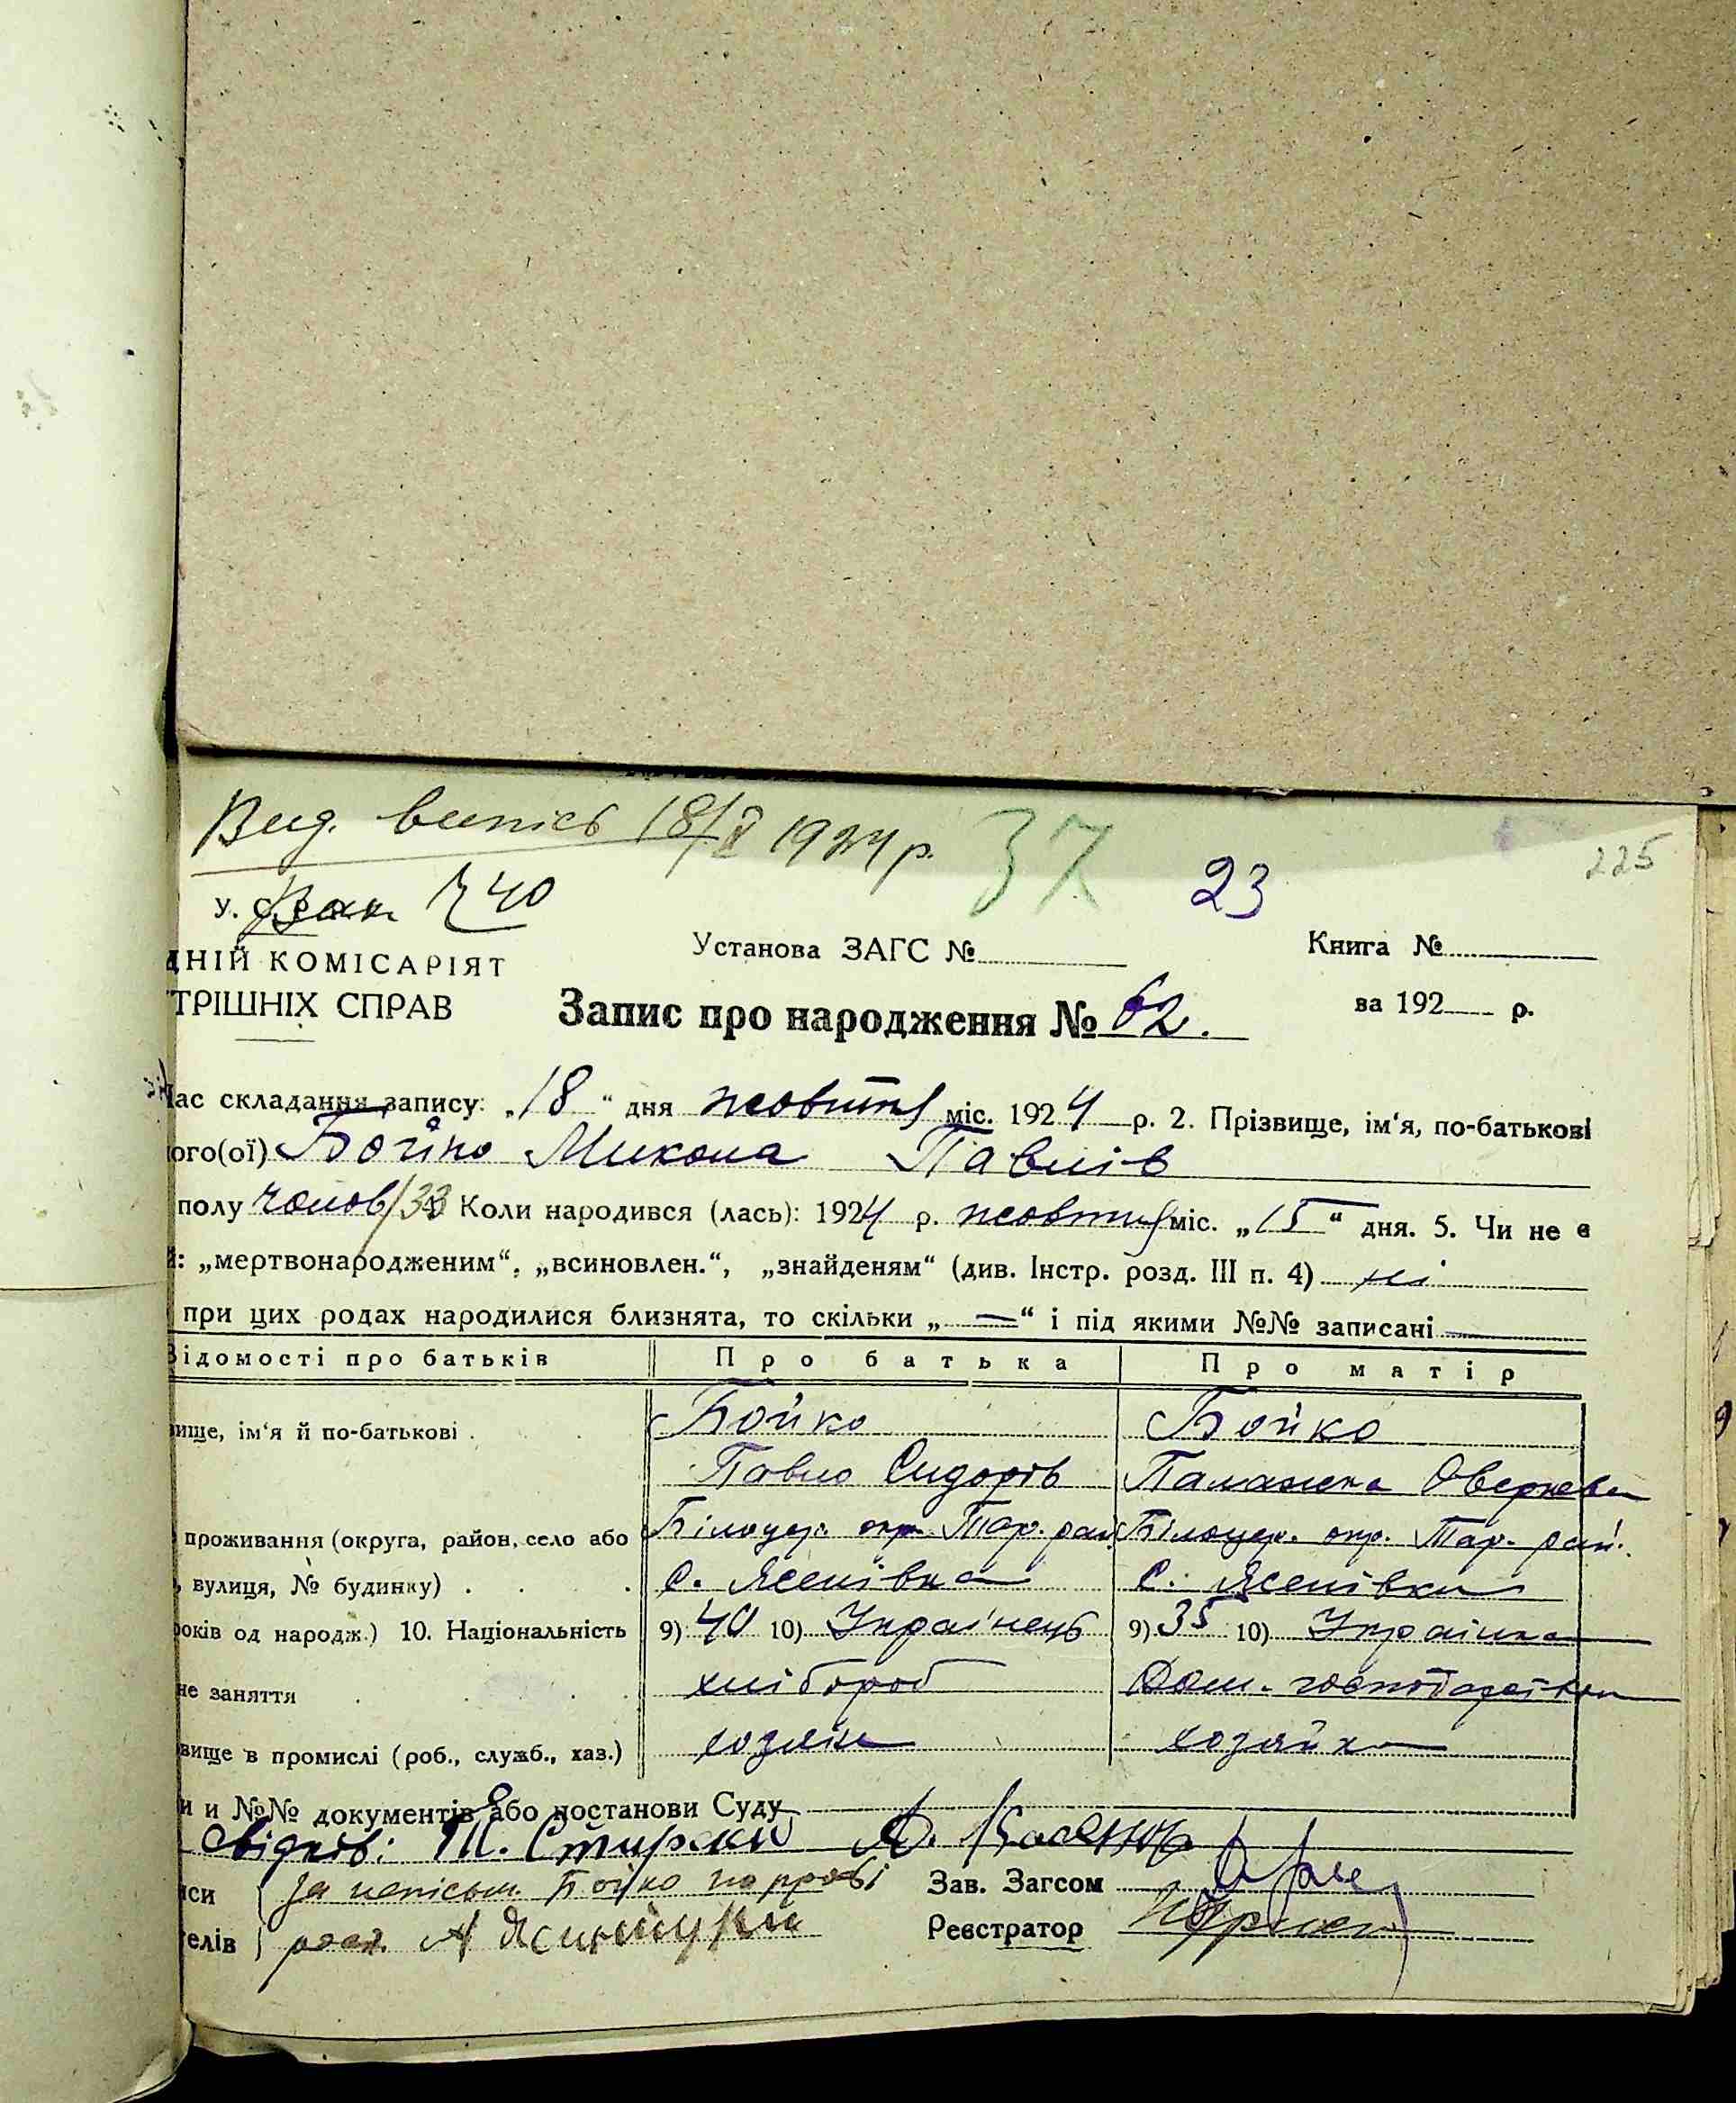 Вид. випісь 18/X 1924 р. 37
23
225
У.
№ 40
ДНІЙ КОМІСАРІЯТ
Установа ЗАГС №
Книга №
ТРІШНІХ СПРАВ
Запис про народження № 62.
за 192 р.
Час складання запису: „18“ дня жовтня міс. 1924 р. 2. Прізвище, ім‘я, по-батькові
ого(ої) Бойко Микола Павлів
полу чолов/33 Коли народився (лась): 1924 р. жовтня міс. „15“ дня. 5. Чи не є
й: „мертвонародженим“, „всиновлен.“, „знайденям“ (див. Інстр. розд. III п. 4) ні
при цих родах народилися близнята, то скільки „—“ і під якими №№ записані —
Відомості про батьків
Про батька
Про матір
вище, ім‘я й по-батькові .
Бойко
Бойко
Павло Сидорів
Палажка Оверкова
проживання (округа, район, село або
Білоцер. окр. Тар. рай
Білоцер. окр. Тар. рай.
, вулиця, № будинку) .
с. Ясенівка
с. Ясенівка
років од народж.) 10. Національність
9) 40 10) Українець
9) 35 10) Українка
не заняття
хлібороб
Дом. господарка
вище в промислі (роб., служб., хаз.)
хозяїн
хозяйка
и и №№ документів або постанови Суду
Свідків: Т.
А.
си
за неписьм. Бойко
Зав. Загсом
елів
Реєстратор